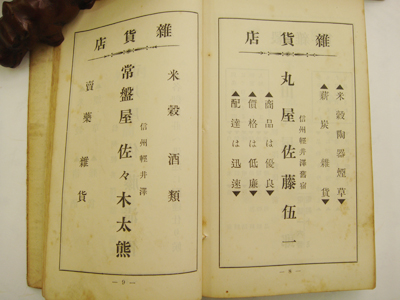 雜貨店
▲米穀陶器煙草▼
▲薪炭雜貨▼
信州輕井澤舊宿
丸屋佐藤伍一
▲商品は優良▼
▲價格は低廉▼
▲配達は迅速▼
— 8 —
雜貨店
米穀酒類
信州輕井澤
常盤屋佐々木太熊
賣藥雜貨
— 9 —